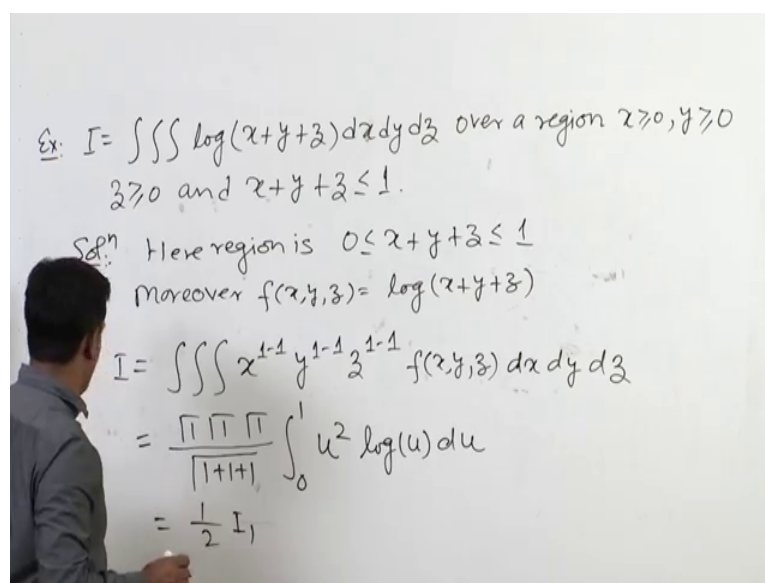 Ex: I = ∫∫∫ log(x+y+z) dx dy dz over a region x≥0, y≥0
z≥0 and x+y+z ≤ 1.
Solⁿ: Here region is 0 ≤ x+y+z ≤ 1
Moreover f(x,y,z) = log(x+y+z)
I = ∫∫∫ x^{1-1} y^{1-1} z^{1-1} f(x,y,z) dx dy dz
= (Γ1 Γ1 Γ1)/(Γ1+1+1) ∫₀¹ u² log(u) du
= 1/2 I₁